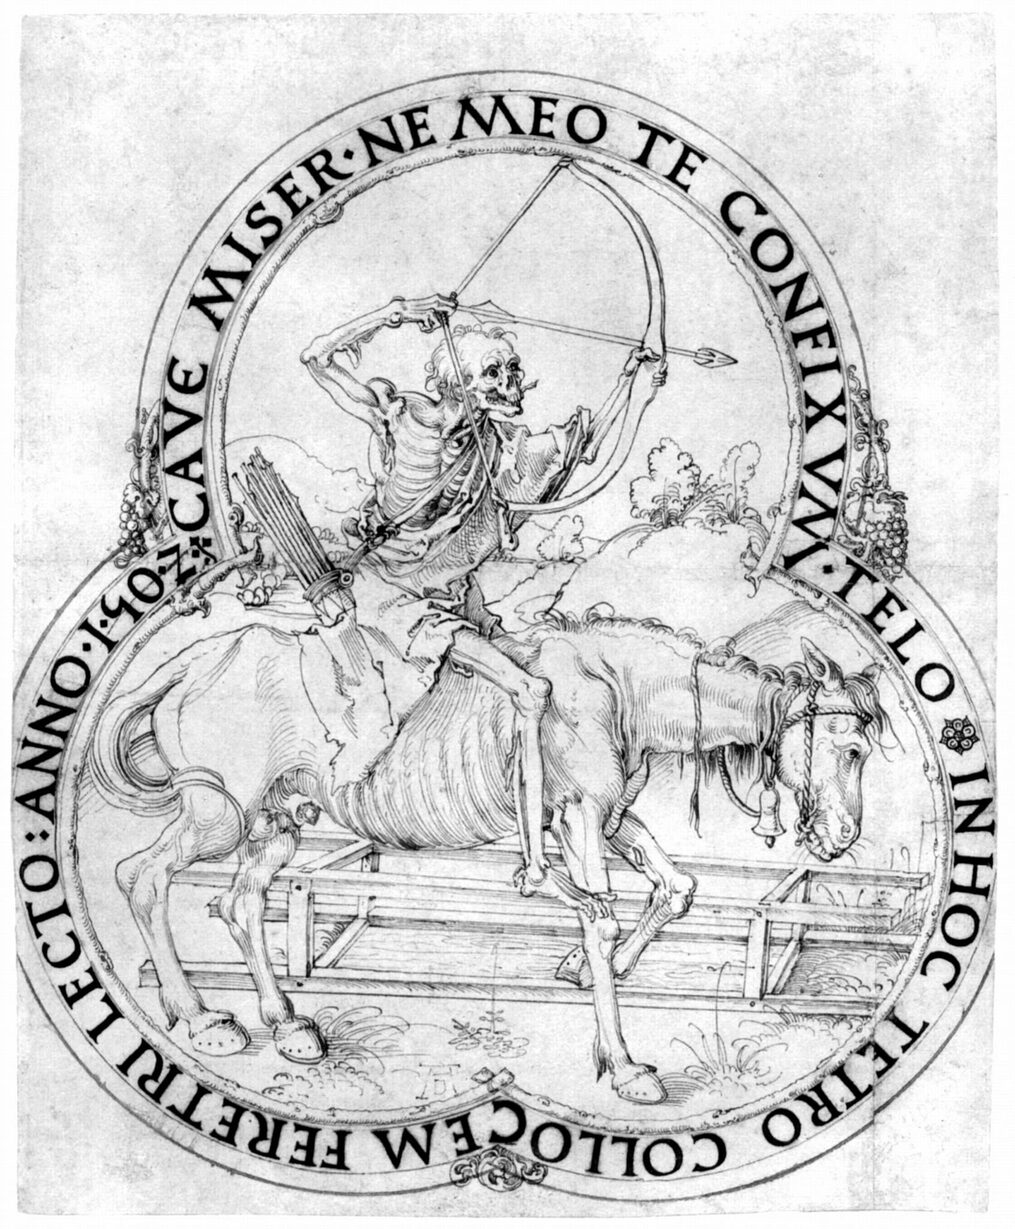 CAVE MISER · NE MEO TE CONFIXVM · TELO IN HOC TETRO COLLOCEM FERETRI LECTO : ANNO · 1·502
AD